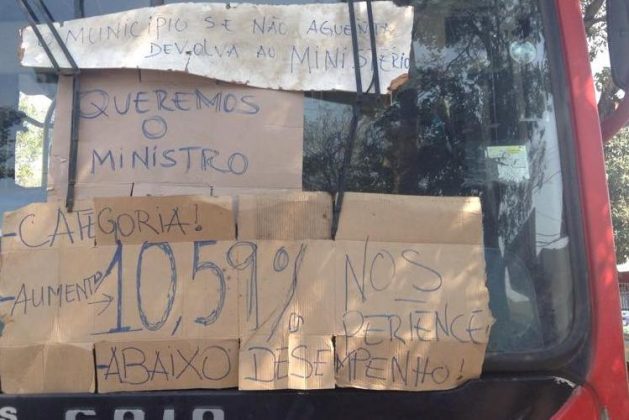 MUNICÍPIO SE NÃO AGUENTAS
DEVOLVA AO MINISTÉRIO
QUEREMOS
O
MINISTRO
-CATEGORIA!
-AUMENTO→10,59% NOS
PERTENCE
-ABAIXO DESEMPENHO!